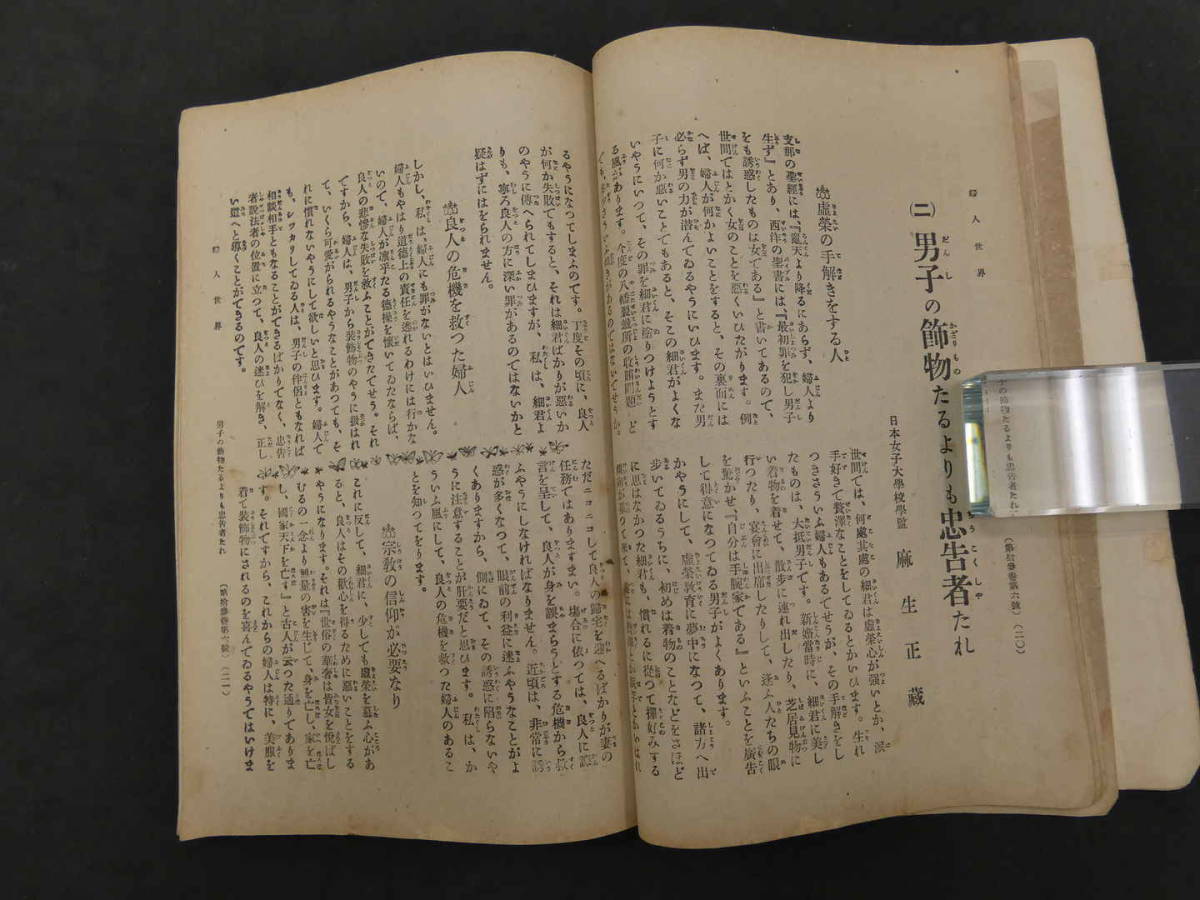 婦人世界
(二)男子の飾物たるよりも忠告者たれ
日本女子大學校學監 麻生正藏
虛榮の手解きをする人
支那の聖經には、『亂天より降るにあらず、婦人より
生ず』とあり、西洋の聖書には、『最初罪を犯し男子
をも誘惑したものは女である』と書いてあるので、
世間ではとかく女のことを惡くいひたがります。例
へば、婦人が何かよいことをすると、その裏面には
必らず男の力が潜んでゐるやうにいひます。また男
子に何か惡いことでもあると、そこの細君がよくな
いやうにいつて、その罪を細君に塗りつけようとす
る風があります。今度の八幡製鐵所の收賄問題
世間では、何處其處の細君は虛榮心が强いとか、派
手好きで贅澤なことをしてゐるとかいひます。生れ
つきさういふ婦人もあるでせうが、その手解きをし
たものは、大抵男子です。新婚當時に、細君に美し
い着物を着せて、散步に連れ出したり、芝居見物に
行つたり、宴會に出席したりして、逢ふ人たちの眼
を驚かせ、『自分は手腕家である』といふことを廣告
して得意になつてゐる男子がよくあります。
かやうにして、虛榮敎育に夢中になつて、諸方へ出
步いてゐるうちに、初めは着物のことなどをさほど
に思はなかつた細君も、慣れるに從つて擇好みする
(第拾參卷第六號) (二〇)
るやうになつてしまふのです。丁度その頃に、良人
が何か失敗でもすると、それは細君ばかりが惡いか
のやうに傳へられてしまひますが、私は、細君よ
りも、寧ろ良人の方に深い罪があるのではないかと
疑はずにはをられません。
良人の危機を救つた婦人
しかし、私は、婦人にも罪がないとはいひません。
婦人もやはり道德上の責任を逃れるわけには行かな
いので、婦人が凛乎たる德操を懷いてゐたならば、
良人の悲慘な失敗を救ふことができたでせう。それ
ですから、婦人は、男子から裝飾物のやうに扱はれ
て、いくら可愛がられるやうなことがあつても、そ
れに慣れないやうにして欲しいと思ひます。婦人で
も、シッカリしてゐる人は、男子の伴侶ともなれば
相談相手ともなることができるばかりでなく、忠告
者說法者の位置に立つて、良人の迷ひを解き、正し
い道へと導くことができるのです。
ただニコニコして良人の歸宅を迎へるばかりが妻の
任務ではありますまい。場合に依つては、良人に諫
言を呈して、良人が身を誤まらうとする危機から救
ふやうにしなければなりません。近頃は、非常に誘
惑が多くなつて、眼前の利益に迷ふやうなことがよ
くありますから、側にゐて、その誘惑に陷らないや
うに注意することが肝要だと思ひます。私は、か
ういふ風にして、良人の危機を救つた婦人のあるこ
とを知つてをります。
宗敎の信仰が必要なり
これに反して、細君に、少しでも虛榮を慕ふ心があ
ると、良人はその歡心を得るために惡いことをする
やうになります。それは『世俗の奢は皆女を悅ばし
むるの一念より無量の害を生じて、身を亡し、家を亡
し、國家天下を亡す』と古人が云つた通りでありま
す。それですから、これからの婦人は特に、美服を
着て裝飾物にされるのを喜んでゐるやうではいけま
婦人世界
男子の飾物たるよりも忠告者たれ
(第拾參卷第六號) (二一)